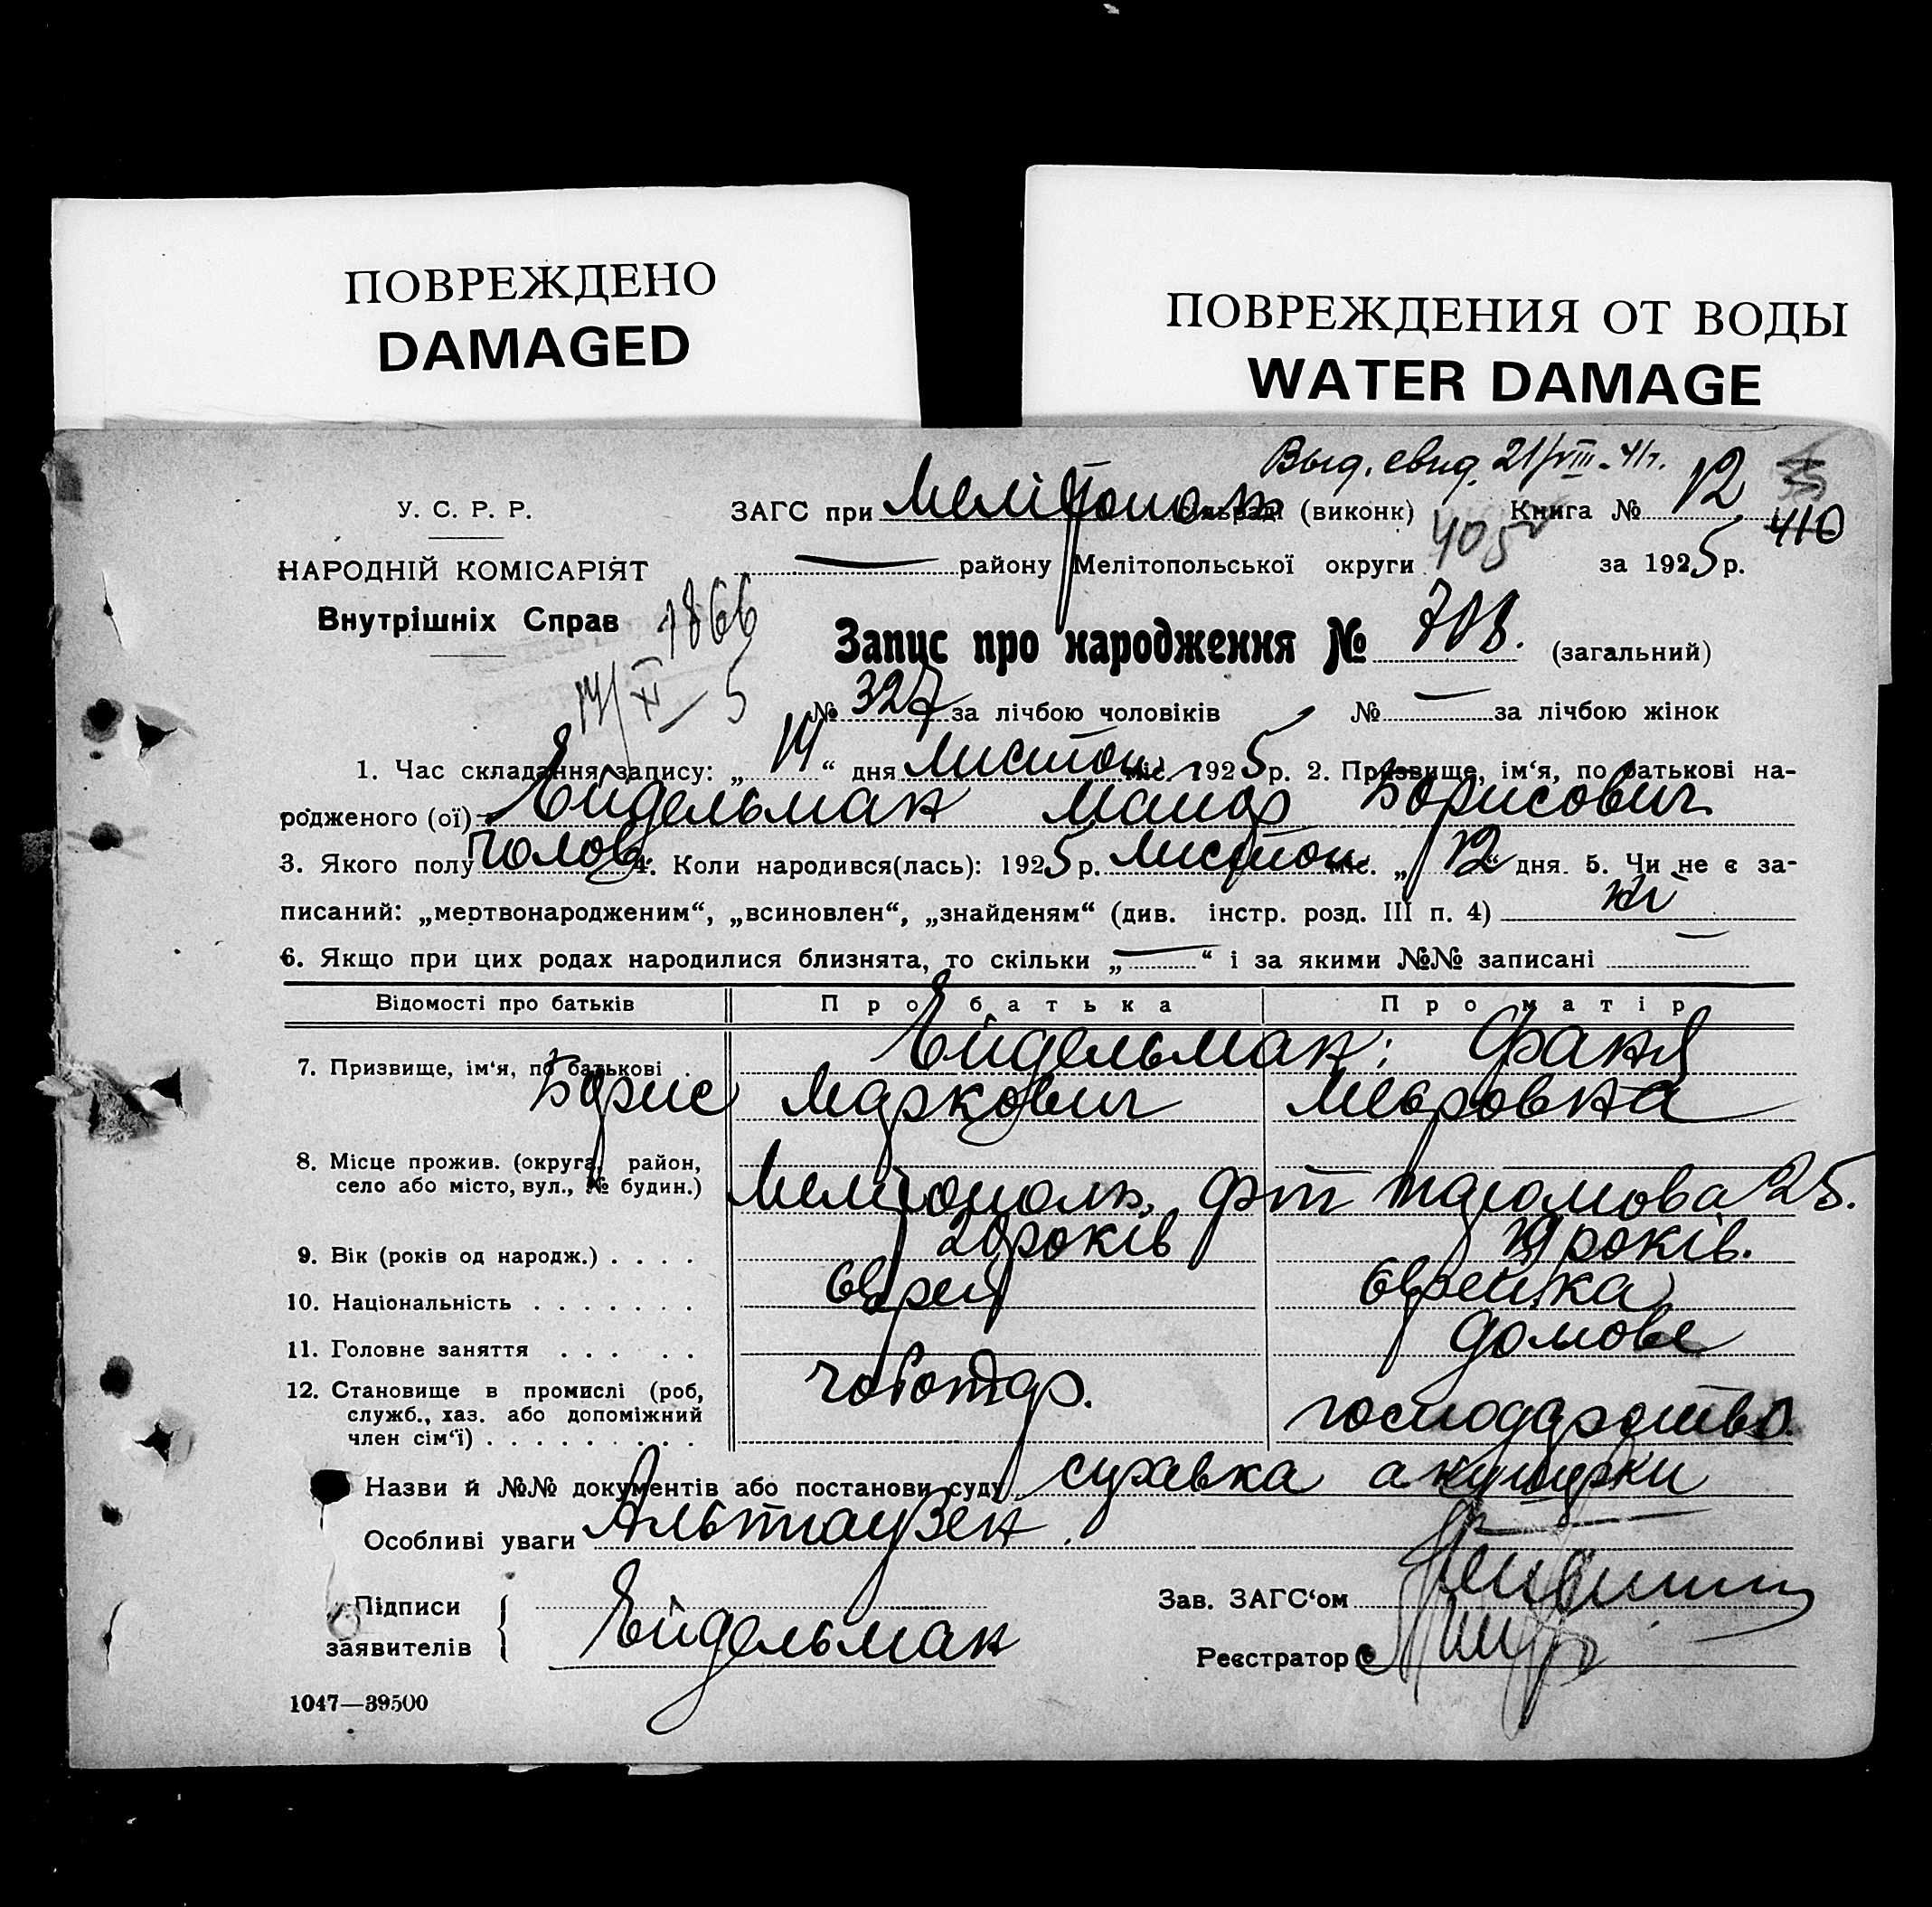 ПОВРЕЖДЕНО
DAMAGED
ПОВРЕЖДЕНИЯ ОТ ВОДЫ
WATER DAMAGE
Выд. свид. 21/VIII-41г.
У. С. Р. Р.
НАРОДНІЙ КОМІСАРІЯТ
Внутрішніх Справ
1866
14/XI-5
ЗАГС при Мелітополь сільраді (виконк) Книга № 12
405 410
— району Мелітопольської округи за 1925 р.
Запис про народження № 708. (загальний)
№ 327 за лічбою чоловіків № — за лічбою жінок
1. Час складання запису: „ 14 “ дня листоп. міс. 1925 р. 2. Призвище, ім‘я, по батькові на-
родженого (ої) Ейдельман Мамор Борисович
3. Якого полу чолов. 4. Коли народився(лась): 1925 р. листоп. міс. „ 12 “ дня. 5. Чи не є за-
писаний: „мертвонародженим“, „всиновлен“, „знайденям“ (див. інстр. розд. III п. 4) ні
6. Якщо при цих родах народилися близнята, то скільки „ — “ і за якими №№ записані —
Відомості про батьків Про батька Про матір
7. Призвище, ім‘я, по батькові . Ейдельман: Фаня
Борис Маркович Меєровна
8. Місце прожив. (округа, район,
село або місто, вул., № будин.) Мелітополь, 25.
9. Вік (років од народж.) . . . . 20 років 19 років.
10. Національність . . . . . . . Єврей Єврейка
11. Головне заняття . . . . . домове
12. Становище в промислі (роб,
служб., хаз. або допоміжний
член сім‘ї) . . . . . . . . . чоботар. господарство.
Назви й №№ документів або постанови суду справка акушерки
Особливі уваги Альтгаузен
Підписи
заявителів Ейдельман
Зав. ЗАГС‘ом
Реєстратор
1047—39500